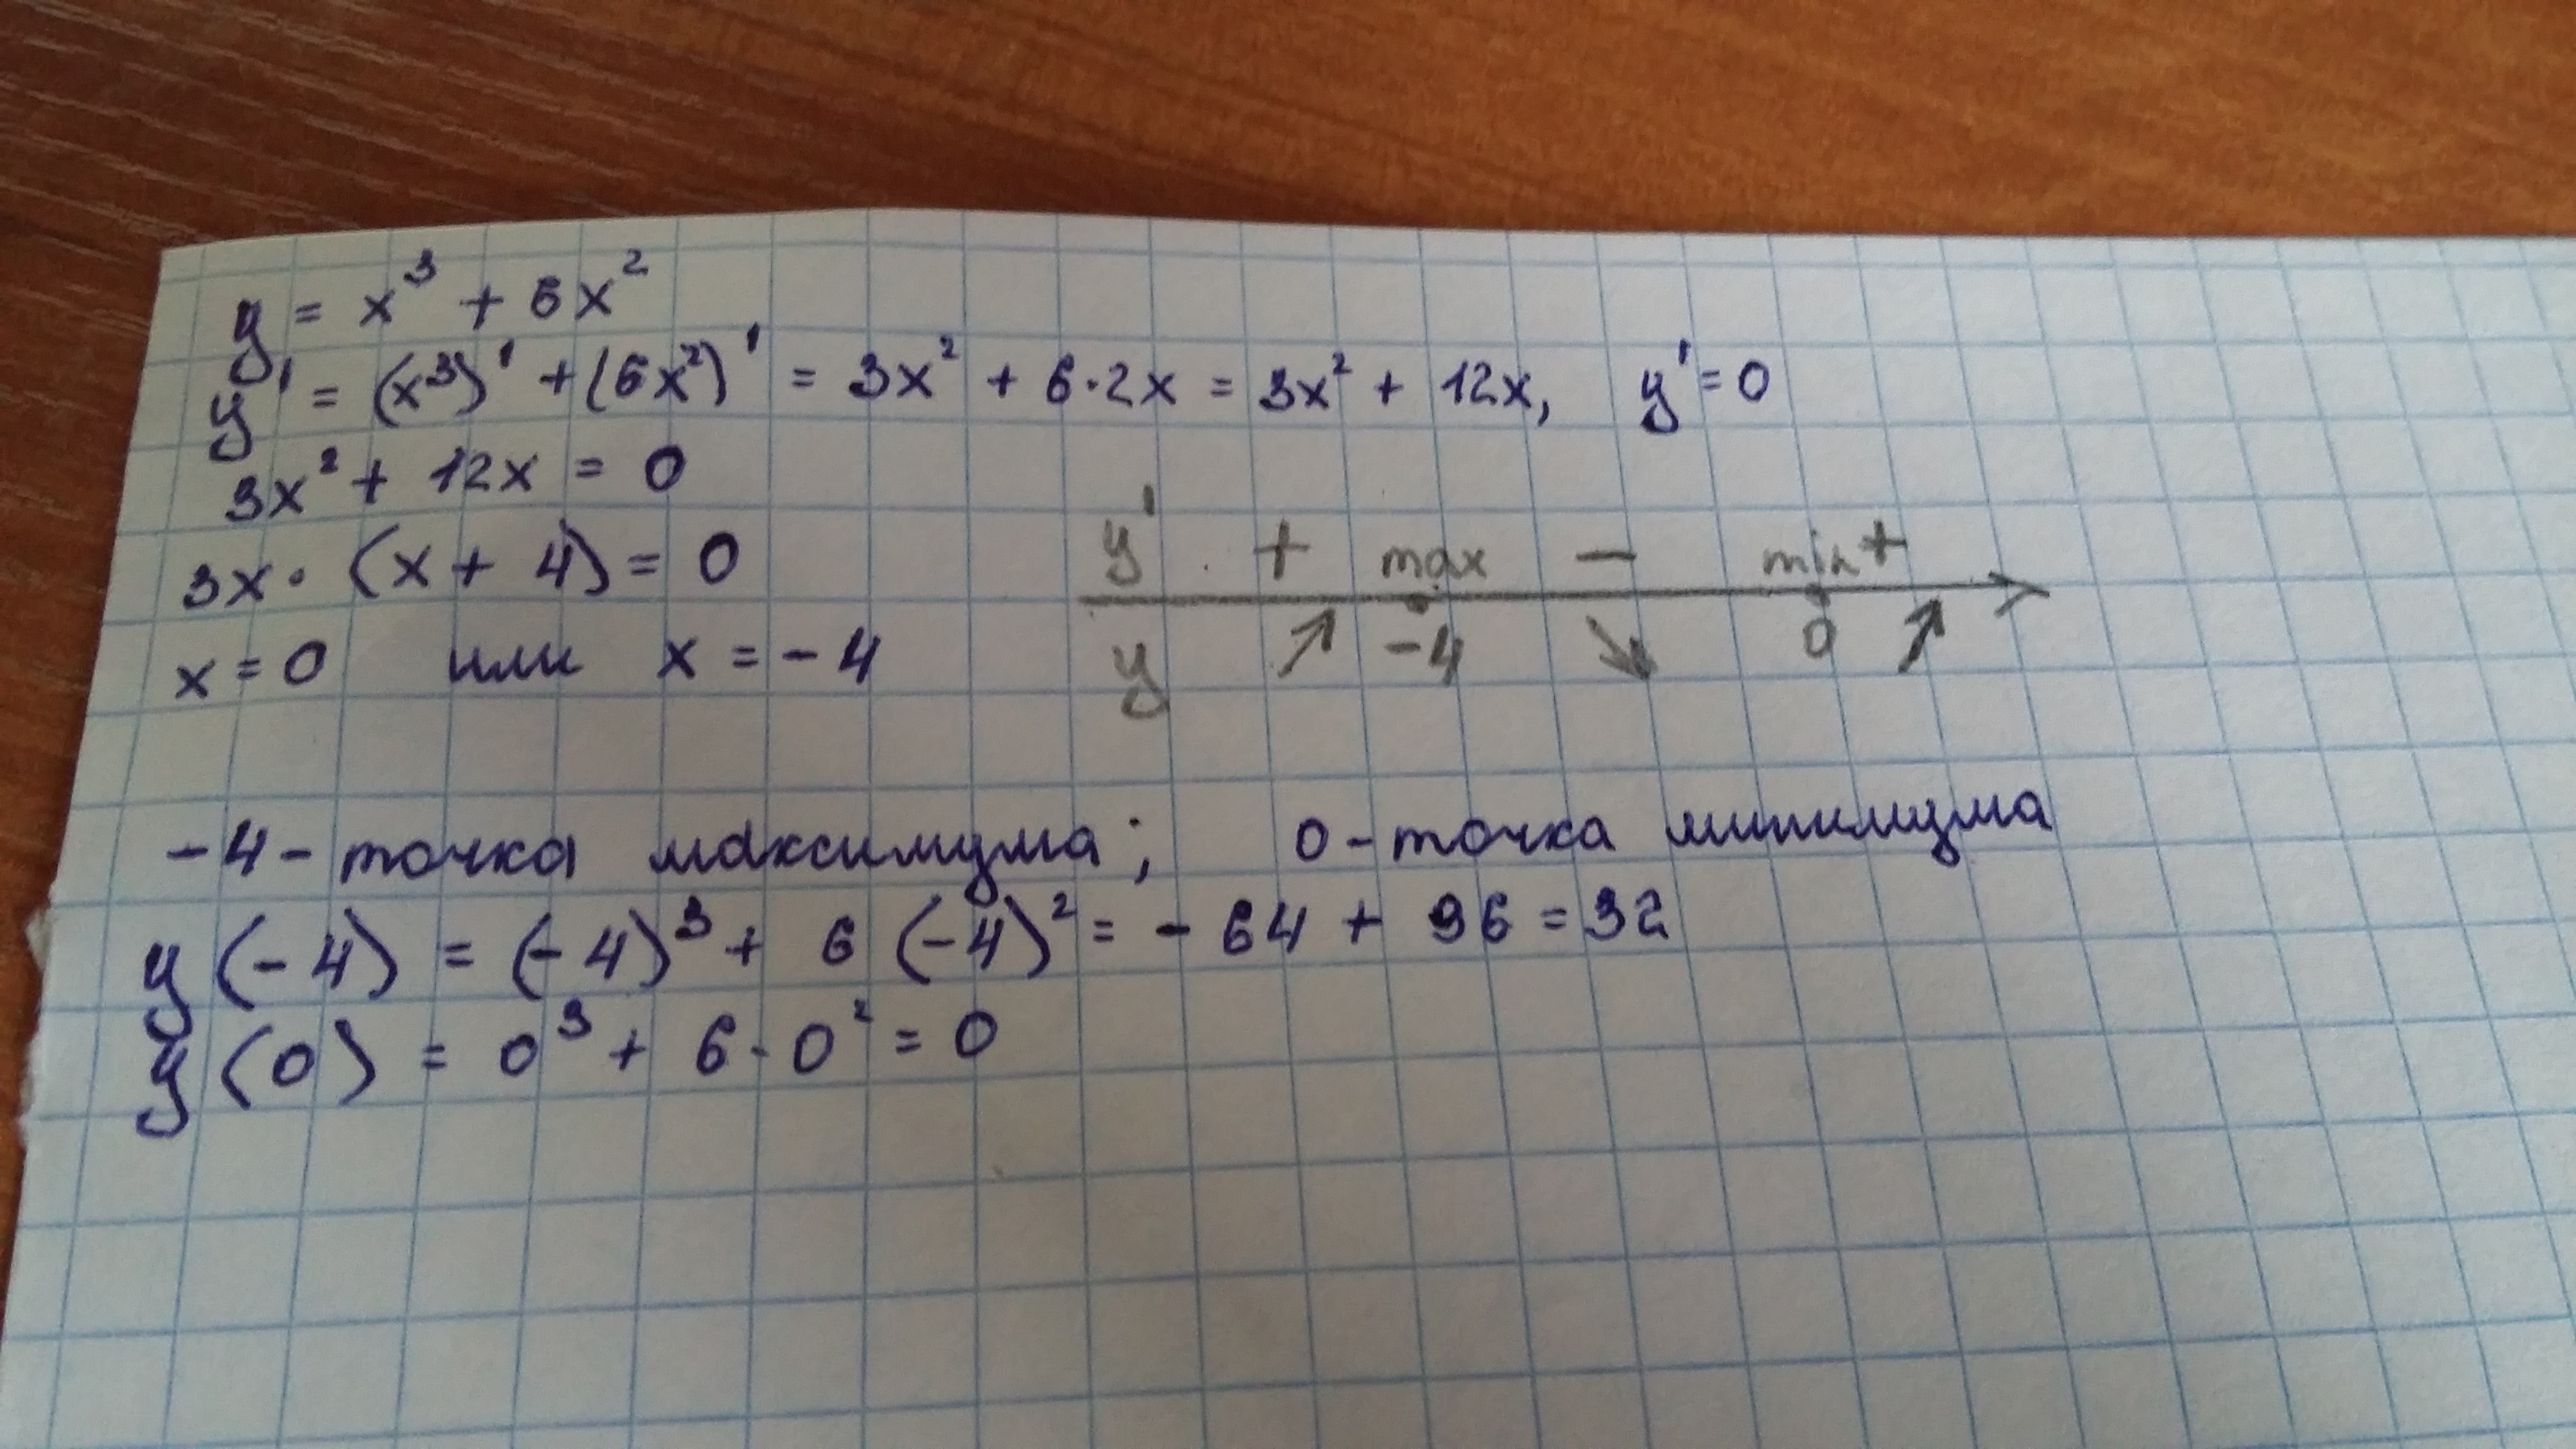 y = x³ + 6x²
y' = (x³)' + (6x²)' = 3x² + 6·2x = 3x² + 12x, y' = 0
3x² + 12x = 0
y' + max − min +
3x · (x + 4) = 0
x = 0 или x = −4
y ↗ −4 ↘ 0 ↗
−4 − точка максимума; 0 − точка минимума
y(−4) = (−4)³ + 6(−4)² = −64 + 96 = 32
y(0) = 0³ + 6·0² = 0